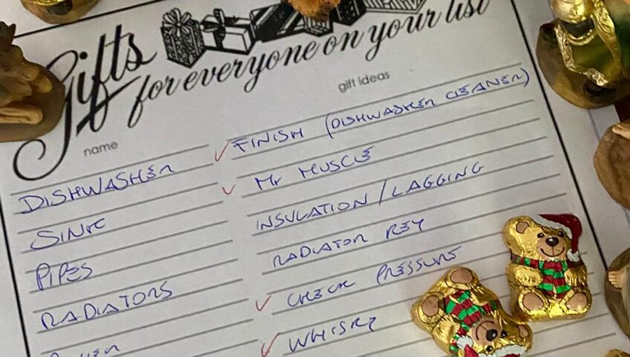 Gifts
for everyone on your list
name gift ideas
DISHWASHER FINISH (DISHWASHER CLEANER)
SINK Mr MUSCLE
PIPES INSULATION / LAGGING
RADIATORS RADIATOR KEY
CHECK PRESSURE
WHISKY